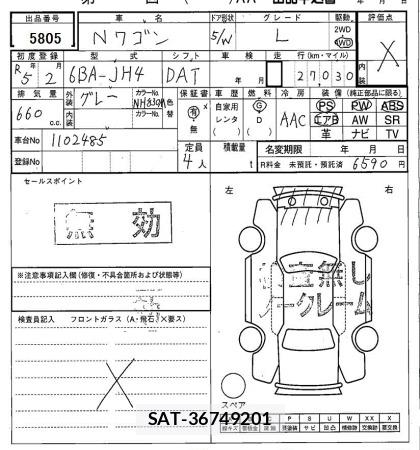 出品番号 車名 ドア形状 グレード 駆動 評価点
5805 Nワゴン 5/W L 2WD 4WD X
初度登録 型式 シフト 車検 走行(km・マイル)
R5 2月 6BA-JH4 DAT 年 月 27030
排気量 外装 グレー カラーNo. NH830M 色替 保証書 車歴 燃料 冷房 装備(純正部品に限る)
660 c.c. 内装 カラーNo. 有 無 自家用 レンタ G D AAC PS PW ABS
エアB AW SR
革 ナビ TV
車台No 1102485 定員 4人 積載量 t 名変期限 年 月 日
登録No R料金 未預託・預託済 6590円
セールスポイント 左 右
無効
※注意事項記入欄(修復・不具合箇所および状態等)
検査員記入 フロントガラス(A・飛石・X要ス)
無し
ノークレーム
スペア
SAT-36749201
P S U W XX X